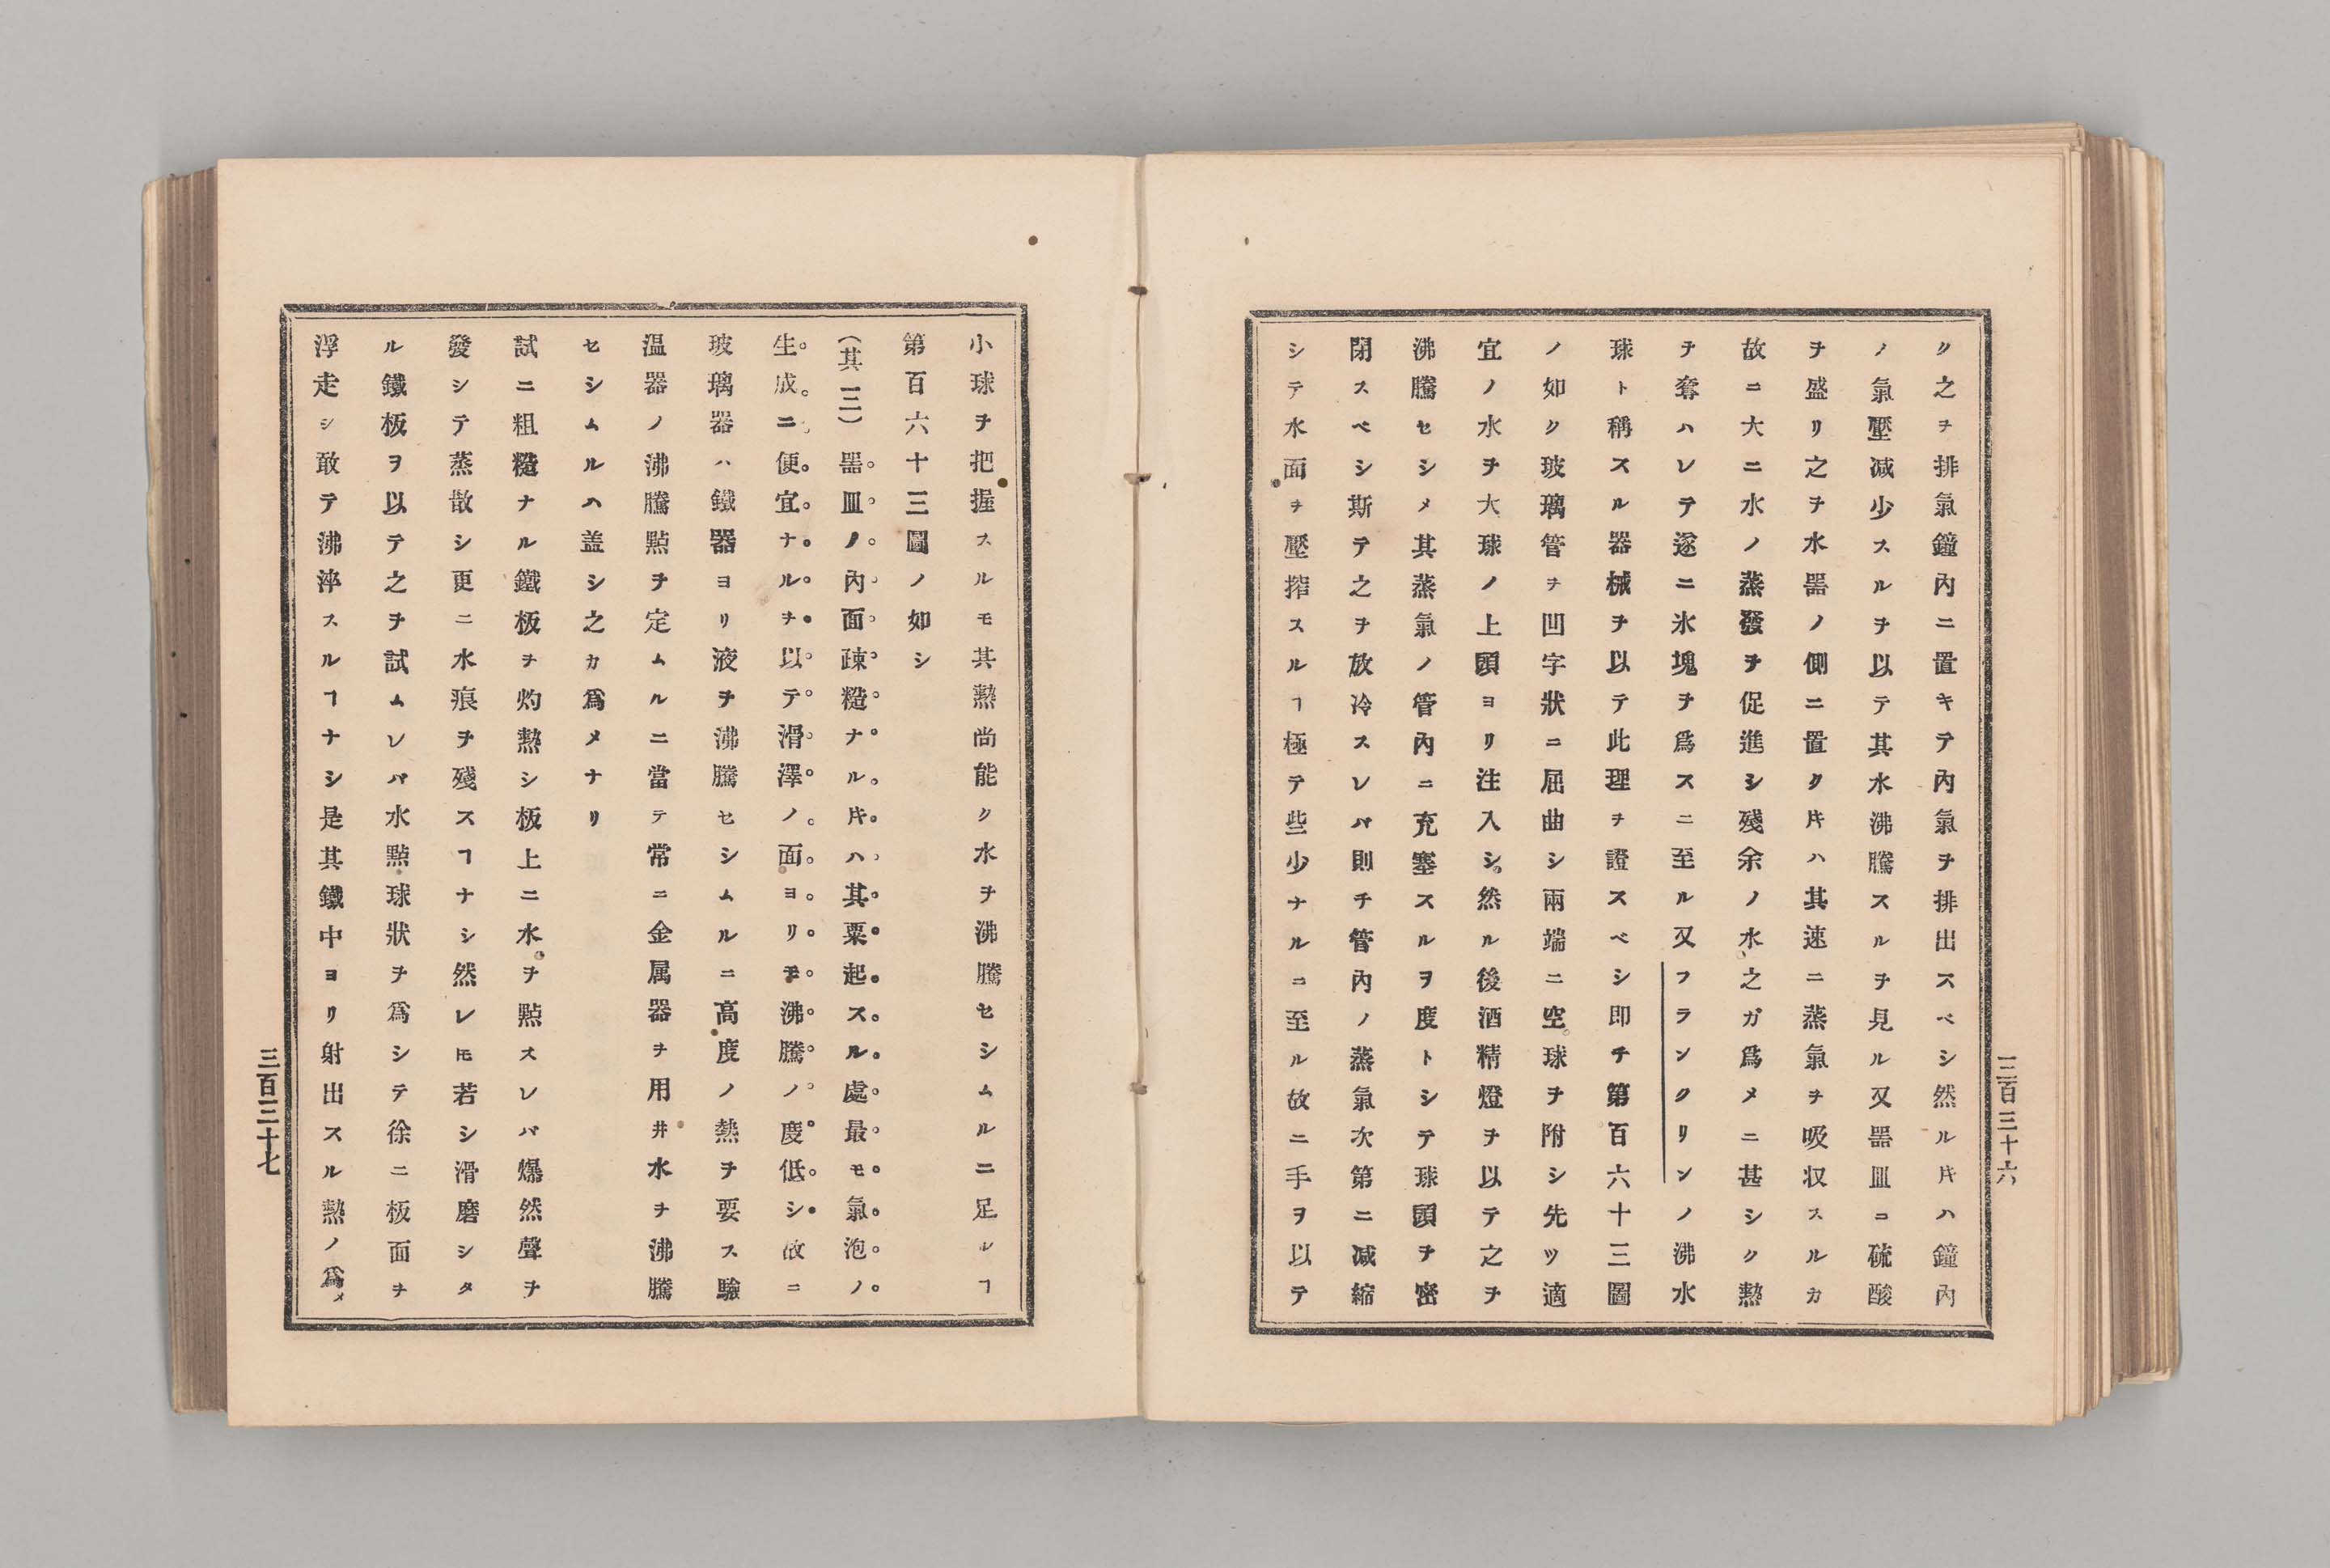 ク之ヲ排氣鐘內ニ置キテ內氣ヲ排出スベシ然ルㇳキハ鐘內
ノ氣壓減少スルヲ以テ其水沸騰スルヲ見ル又器皿ニ硫酸
ヲ盛リ之ヲ水器ノ側ニ置クㇳキハ其速ニ蒸氣ヲ吸収スルカ
故ニ大ニ水ノ蒸發ヲ促進シ殘余ノ水之ガ爲メニ甚シク熱
ヲ奪ハレテ遂ニ氷塊ヲ爲スニ至ル又フランクリンノ沸水
球ト稱スル器械ヲ以テ此理ヲ證スベシ即チ第百六十三圖
ノ如ク玻璃管ヲ凹字狀ニ屈曲シ兩端ニ空球ヲ附シ先ツ適
宜ノ水ヲ大球ノ上頭ヨリ注入シ然ル後酒精燈ヲ以テ之ヲ
沸騰セシメ其蒸氣ノ管內ニ充塞スルヲ度トシテ球頭ヲ密
閉スベシ斯テ之ヲ放冷スレバ則チ管內ノ蒸氣次第ニ減縮
シテ水面ヲ壓搾スルヿ極テ些少ナルニ至ル故ニ手ヲ以テ
三百三十六
小球ヲ把握スルモ其熱尚能ク水ヲ沸騰セシムルニ足ルヿ
第百六十三圖ノ如シ
(其三)器皿ノ內面疎糙ナルㇳキハ其粟起スル處最モ氣泡ノ
生成ニ便宜ナルヲ以テ滑澤ノ面ヨリモ沸騰ノ度低シ故ニ
玻璃器ハ鐵器ヨリ液ヲ沸騰セシムルニ高度ノ熱ヲ要ス驗
温器ノ沸騰點ヲ定ムルニ當テ常ニ金属器ヲ用井水ヲ沸騰
セシムルハ盖シ之カ爲メナリ
試ニ粗糙ナル鐵板ヲ灼熱シ板上ニ水ヲ點スレバ爆然聲ヲ
發シテ蒸散シ更ニ水痕ヲ殘スヿナシ然レㇳモ若シ滑磨シタ
ル鐵板ヲ以テ之ヲ試ムレバ水點球狀ヲ爲シテ徐ニ板面ヲ
浮走シ敢テ沸渖スルヿナシ是其鐵中ヨリ射出スル熱ノ爲メ
三百三十七